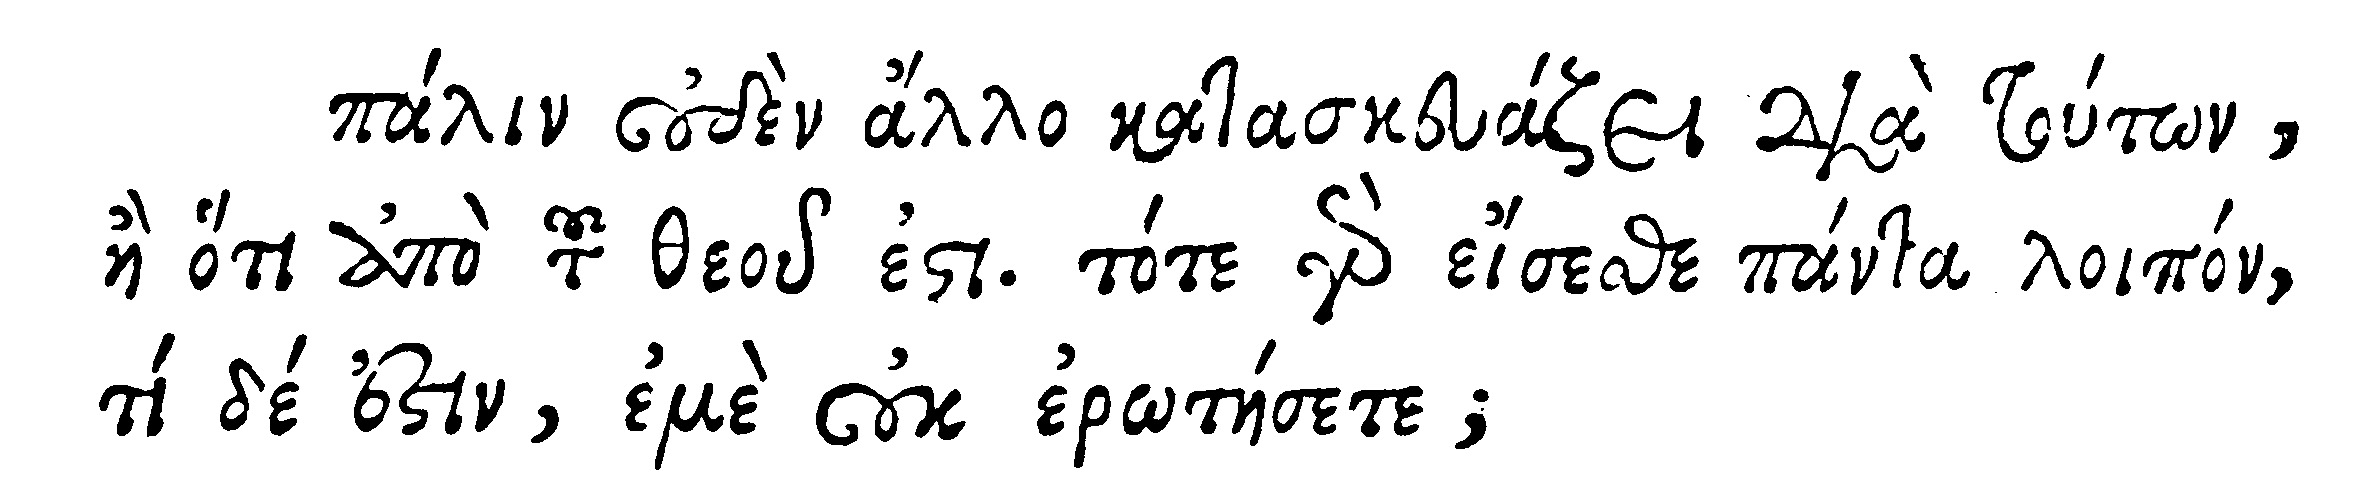 πάλιν οὐδὲν ἄλλο κατασκευάζει διὰ τούτων,
ἢ ὅτι ἀπὸ τοῦ θεοῦ ἐστι. τότε γὰρ εἴσεσθε πάντα λοιπόν,
τί δέ ἐστιν, ἐμὲ οὐκ ἐρωτήσετε;